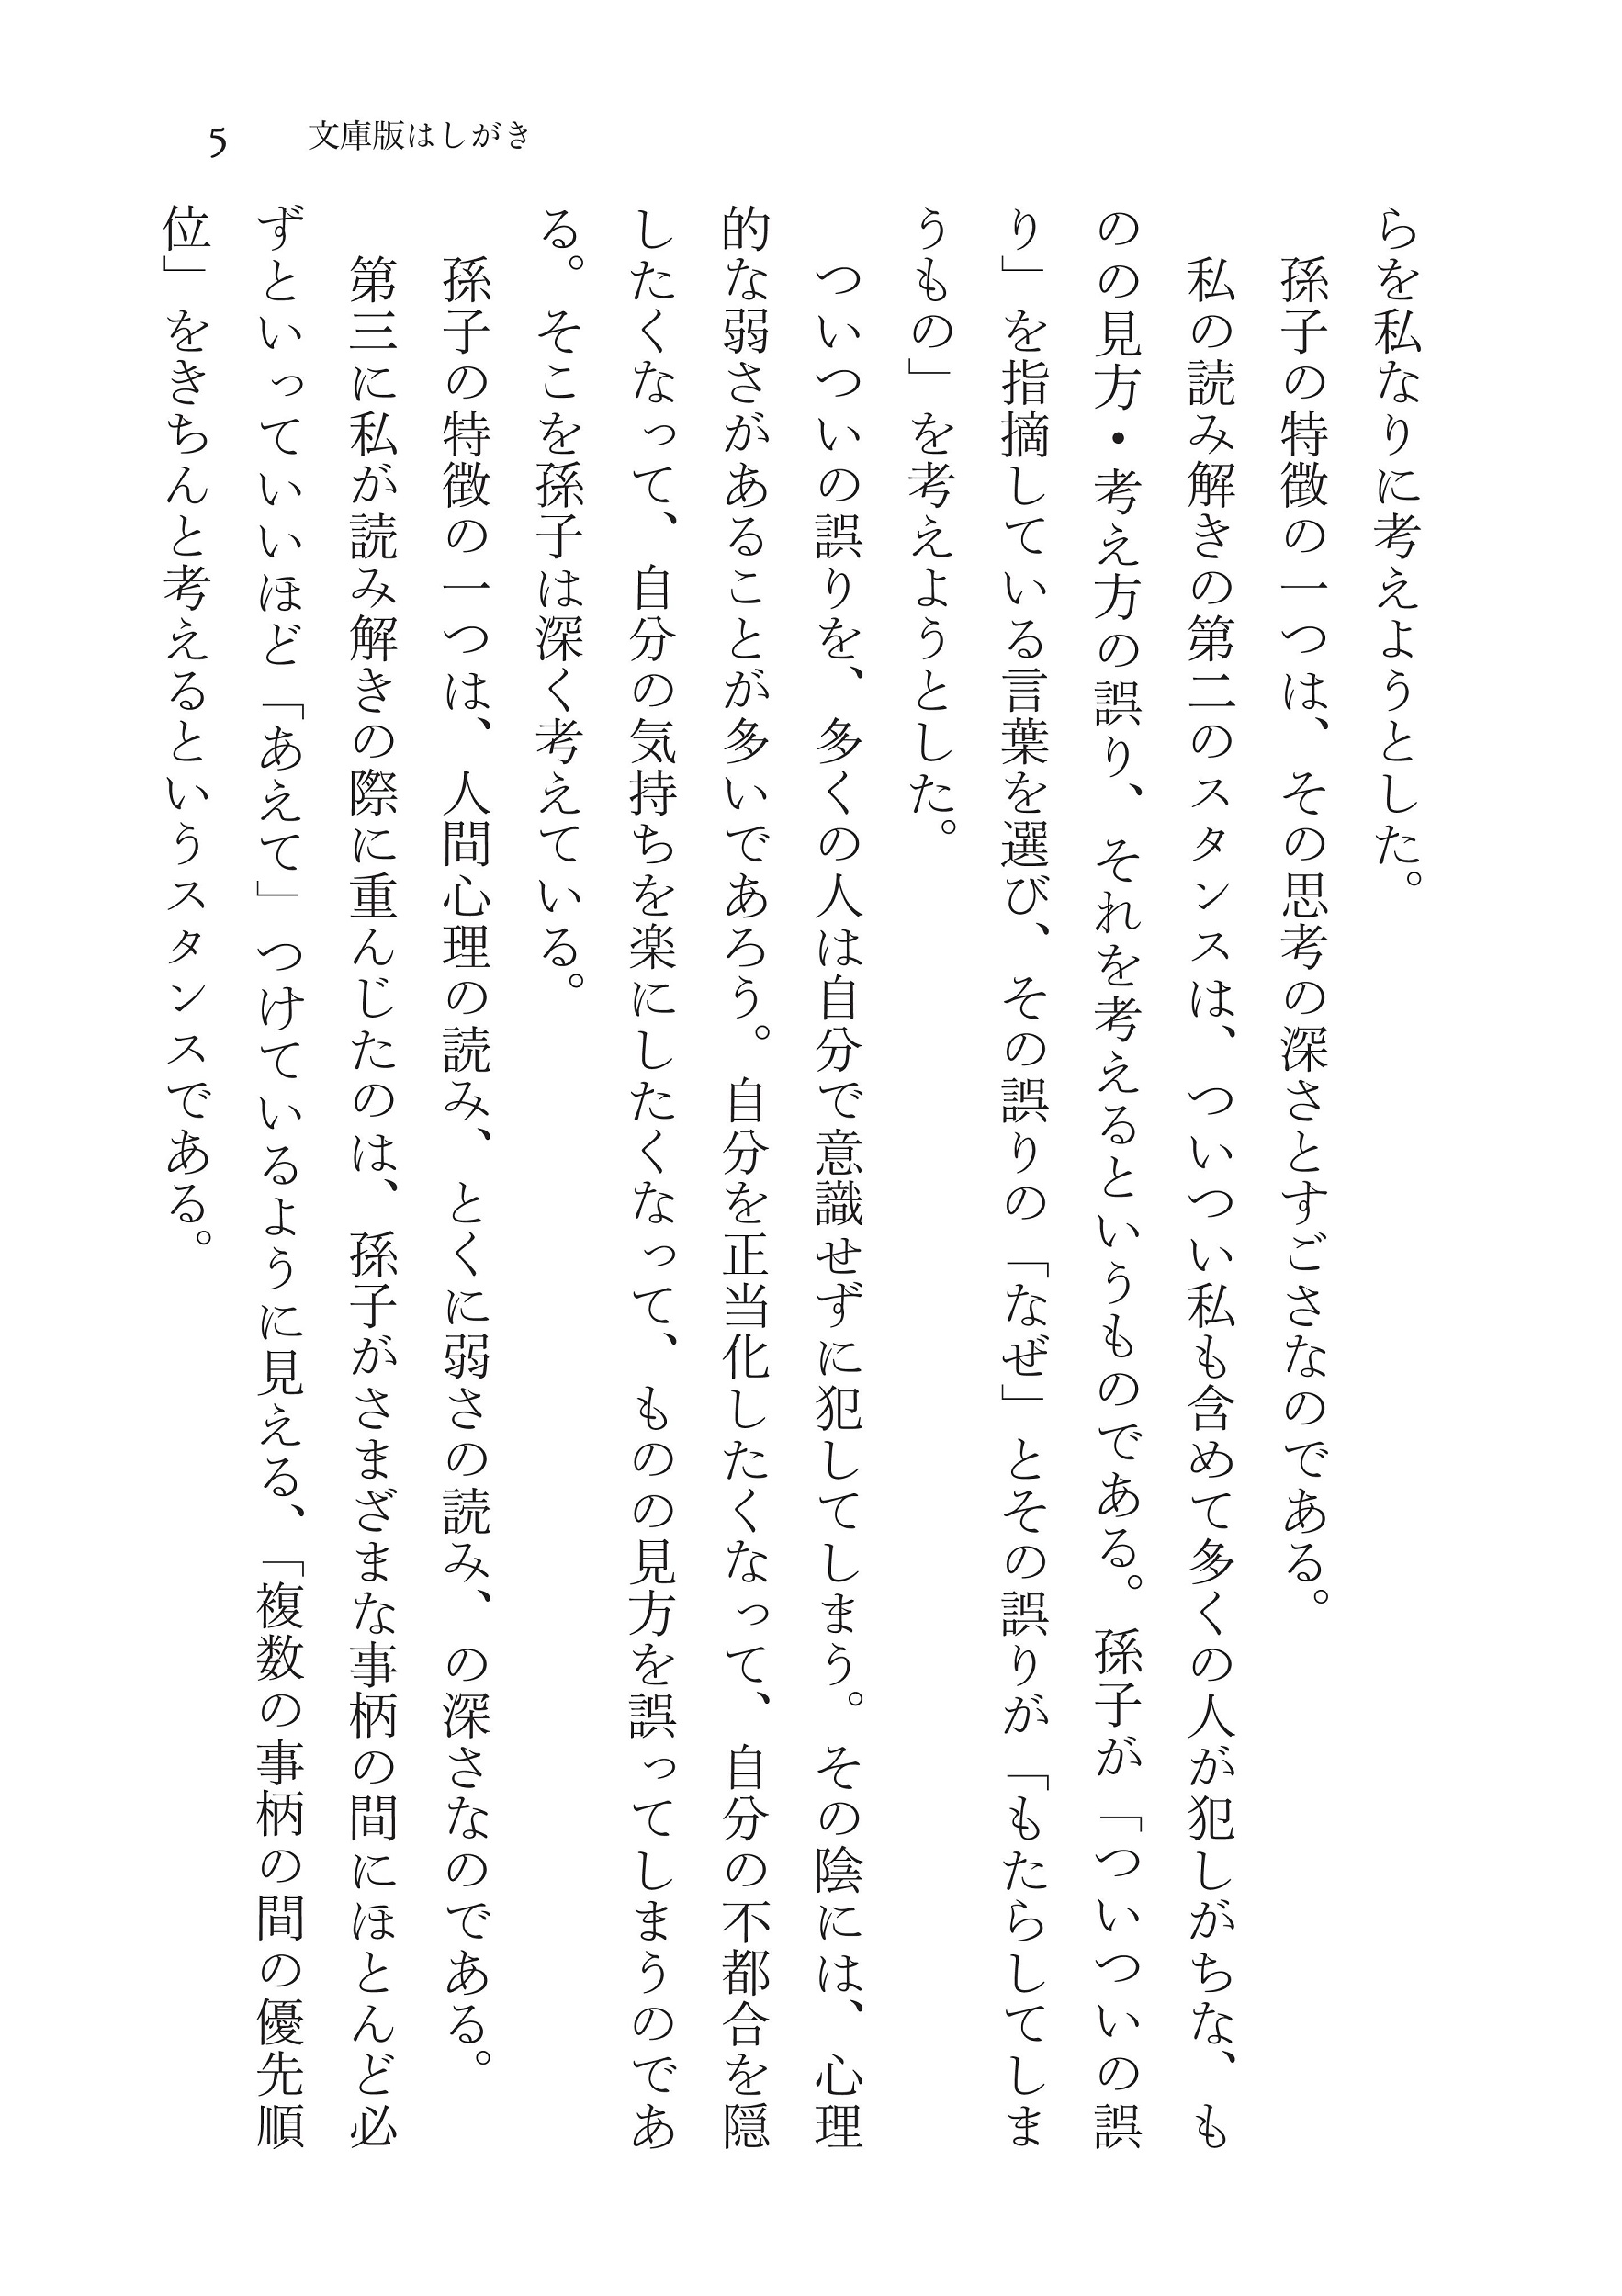 5 文庫版はしがき
らを私なりに考えようとした。
孫子の特徴の一つは、その思考の深さとすごさなのである。
私の読み解きの第二のスタンスは、ついつい私も含めて多くの人が犯しがちな、も
のの見方・考え方の誤り、それを考えるというものである。孫子が「ついついの誤
り」を指摘している言葉を選び、その誤りの「なぜ」とその誤りが「もたらしてしま
うもの」を考えようとした。
ついついの誤りを、多くの人は自分で意識せずに犯してしまう。その陰には、心理
的な弱さがあることが多いであろう。自分を正当化したくなって、自分の不都合を隠
したくなって、自分の気持ちを楽にしたくなって、ものの見方を誤ってしまうのであ
る。そこを孫子は深く考えている。
孫子の特徴の一つは、人間心理の読み、とくに弱さの読み、の深さなのである。
第三に私が読み解きの際に重んじたのは、孫子がさまざまな事柄の間にほとんど必
ずといっていいほど「あえて」つけているように見える、「複数の事柄の間の優先順
位」をきちんと考えるというスタンスである。